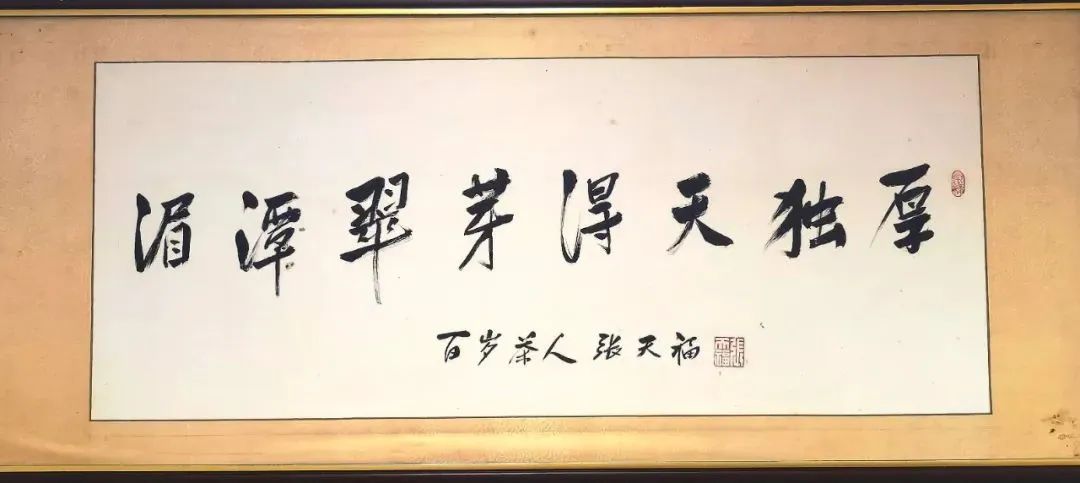 湄潭翠芽得天独厚
百岁茶人张天福